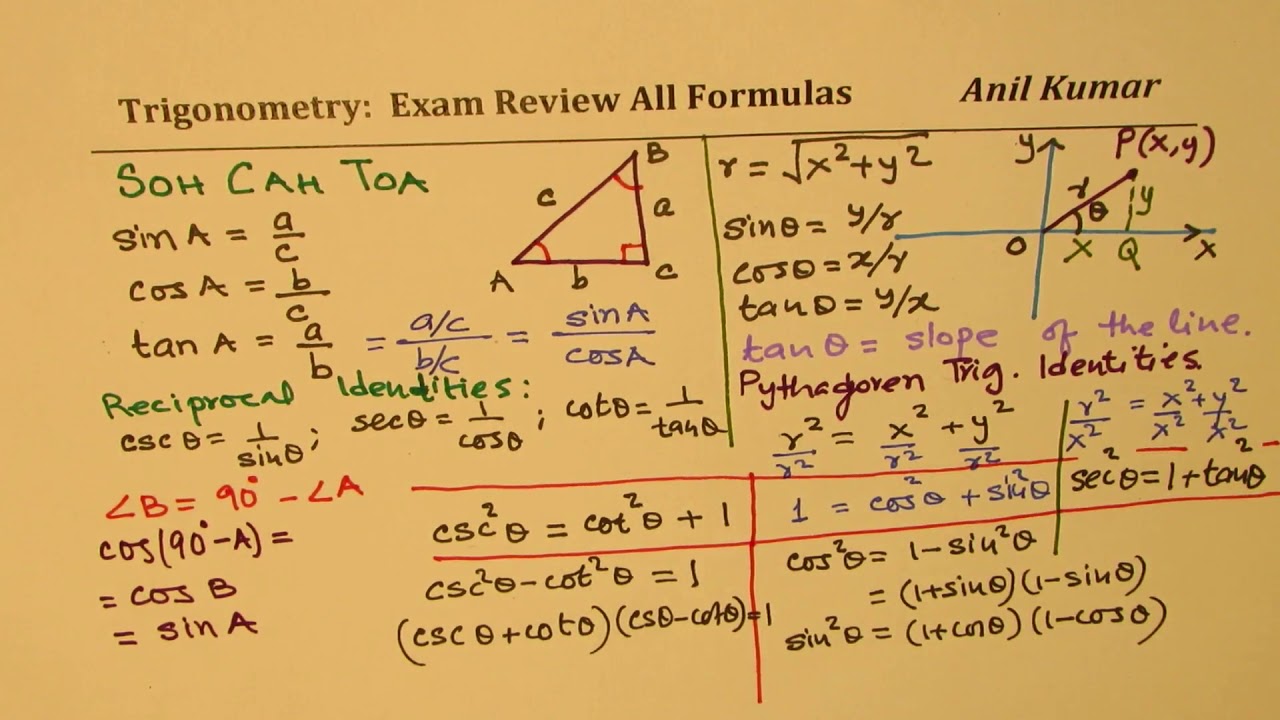 Trigonometry: Exam Review All Formulas
Anil Kumar
SOH CAH TOA
sin A = a/c
cos A = b/c
tan A = a/b = (a/c)/(b/c) = sin A/cos A
A
B
C
a
b
c
Reciprocal Identities:
csc θ = 1/sin θ ; sec θ = 1/cos θ ; cot θ = 1/tan θ
∠B = 90° - ∠A
cos(90° - A) =
= cos B
= sin A
r = √x² + y²
sin θ = y/r
cos θ = x/r
tan θ = y/x
y
P(x, y)
r
θ
y
O
x
Q
x
tan θ = slope of the line.
Pythagoren Trig. Identities.
r²/r² = x²/r² + y²/r²
r²/x² = x²/x² + y²/x²
sec²θ = 1 + tan²θ
1 = cos²θ + sin²θ
csc²θ = cot²θ + 1
csc²θ - cot²θ = 1
(csc θ + cot θ)(csθ - cotθ) = 1
cos²θ = 1 - sin²θ
= (1 + sin θ)(1 - sin θ)
sin²θ = (1 + cos θ)(1 - cos θ)